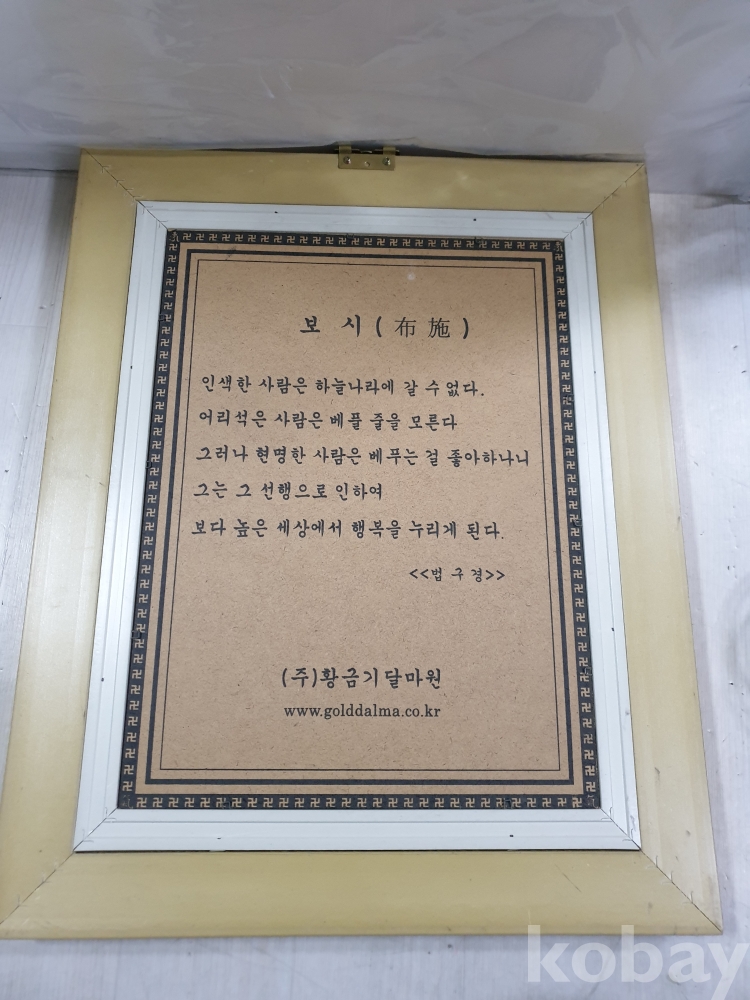 보 시 ( 布 施 )
인색한 사람은 하늘나라에 갈 수 없다.
어리석은 사람은 베플 줄을 모른다
그러나 현명한 사람은 베푸는 걸 좋아하나니
그는 그 선행으로 인하여
보다 높은 세상에서 행복을 누리게 된다.
<<법 구 경>>
(주)황금기달마원
www.golddalma.co.kr
kobay